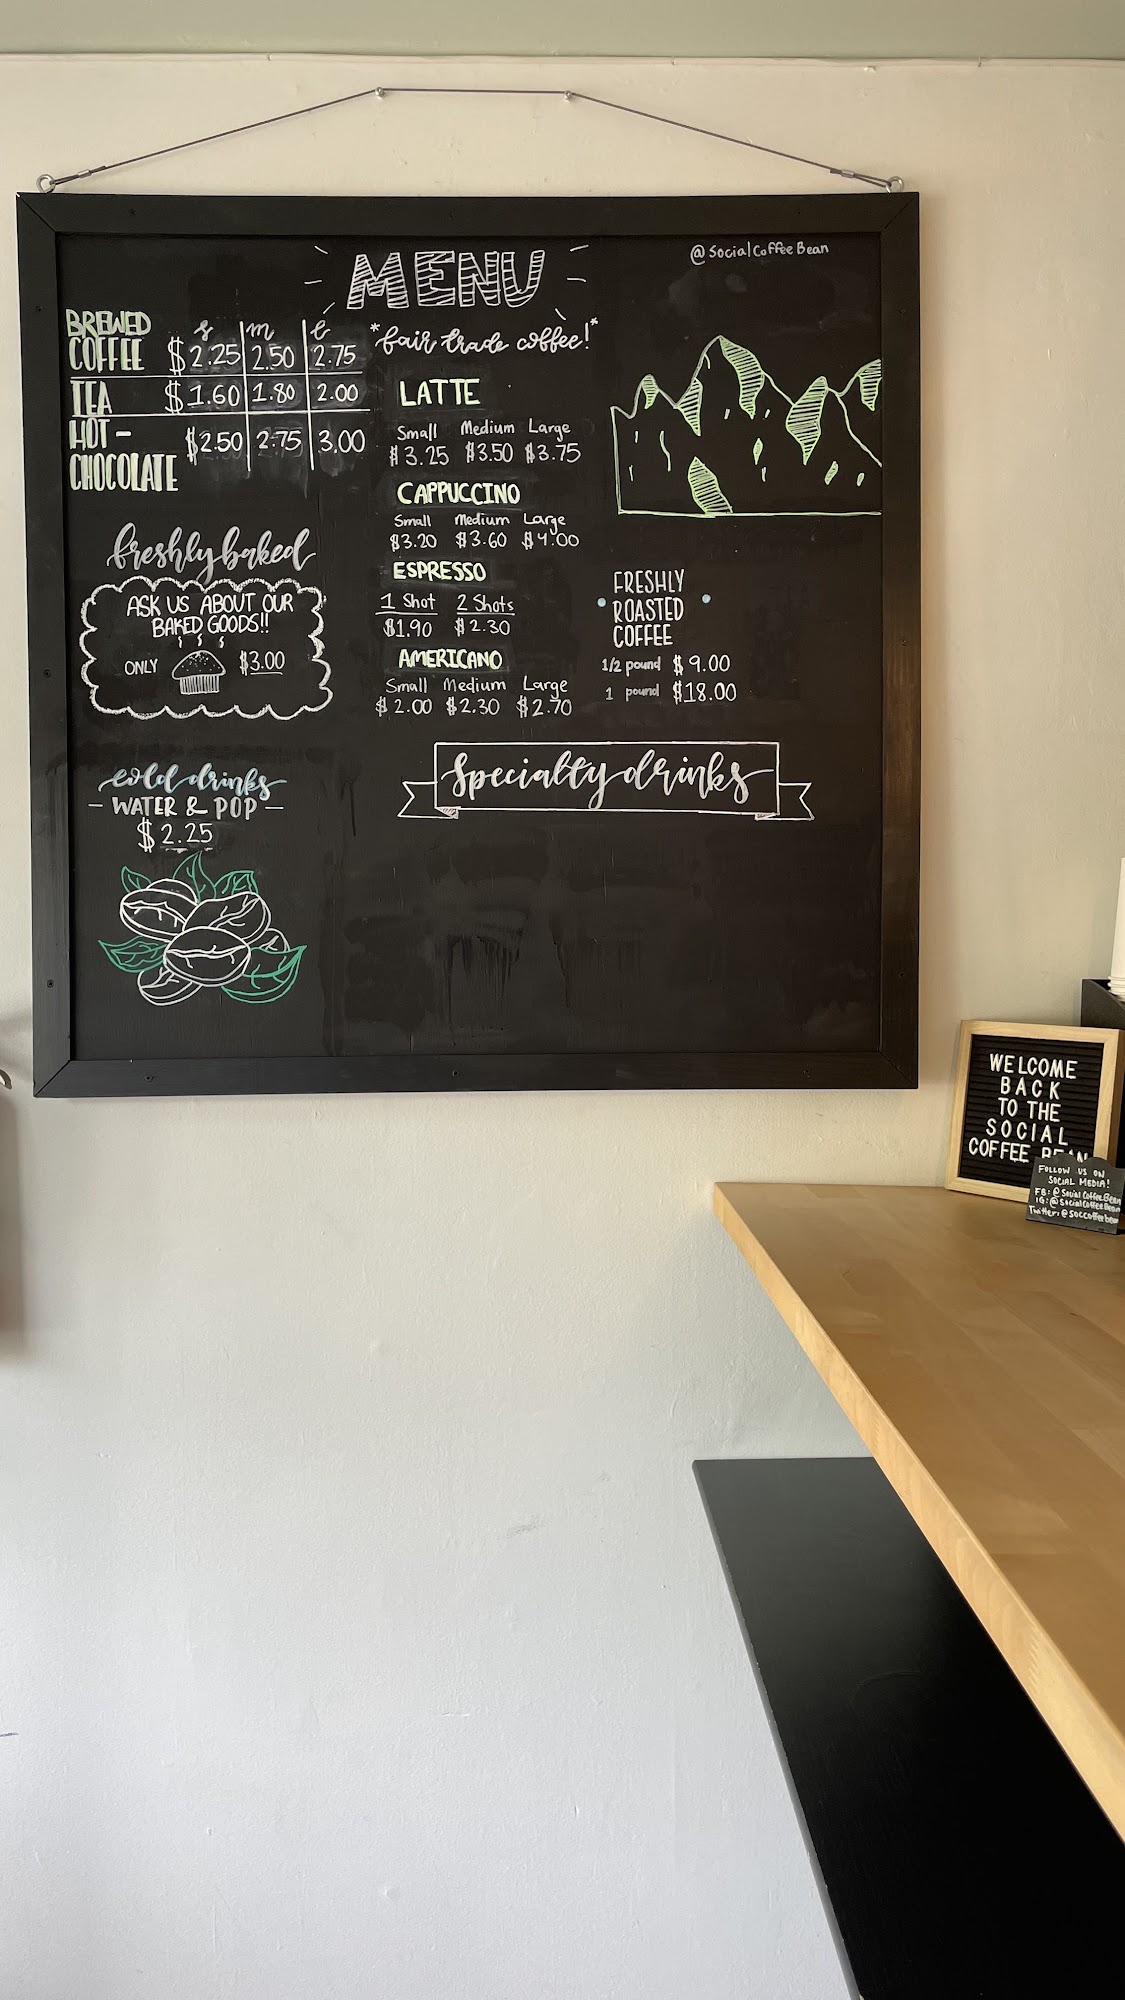 MENU
@SocialCoffeeBean
*fair trade coffee!*
s m l
BREWED COFFEE $2.25 2.50 2.75
TEA $1.60 1.80 2.00
HOT-CHOCOLATE $2.50 2.75 3.00
freshly baked
ASK US ABOUT OUR
BAKED GOODS!!
ONLY $3.00
cold drinks
- WATER & POP -
$2.25
LATTE
Small Medium Large
$3.25 $3.50 $3.75
CAPPUCCINO
Small Medium Large
$3.20 $3.60 $4.00
ESPRESSO
1 Shot 2 Shots
$1.90 $2.30
AMERICANO
Small Medium Large
$2.00 $2.30 $2.70
FRESHLY
ROASTED
COFFEE
1/2 pound $9.00
1 pound $18.00
Specialty drinks
WELCOME
BACK
TO THE
SOCIAL
COFFEE BEAN
FOLLOW US ON
SOCIAL MEDIA!
FB: @SocialCoffeeBean
IG: @SocialCoffeeBean
Twitter: @soccoffeebean